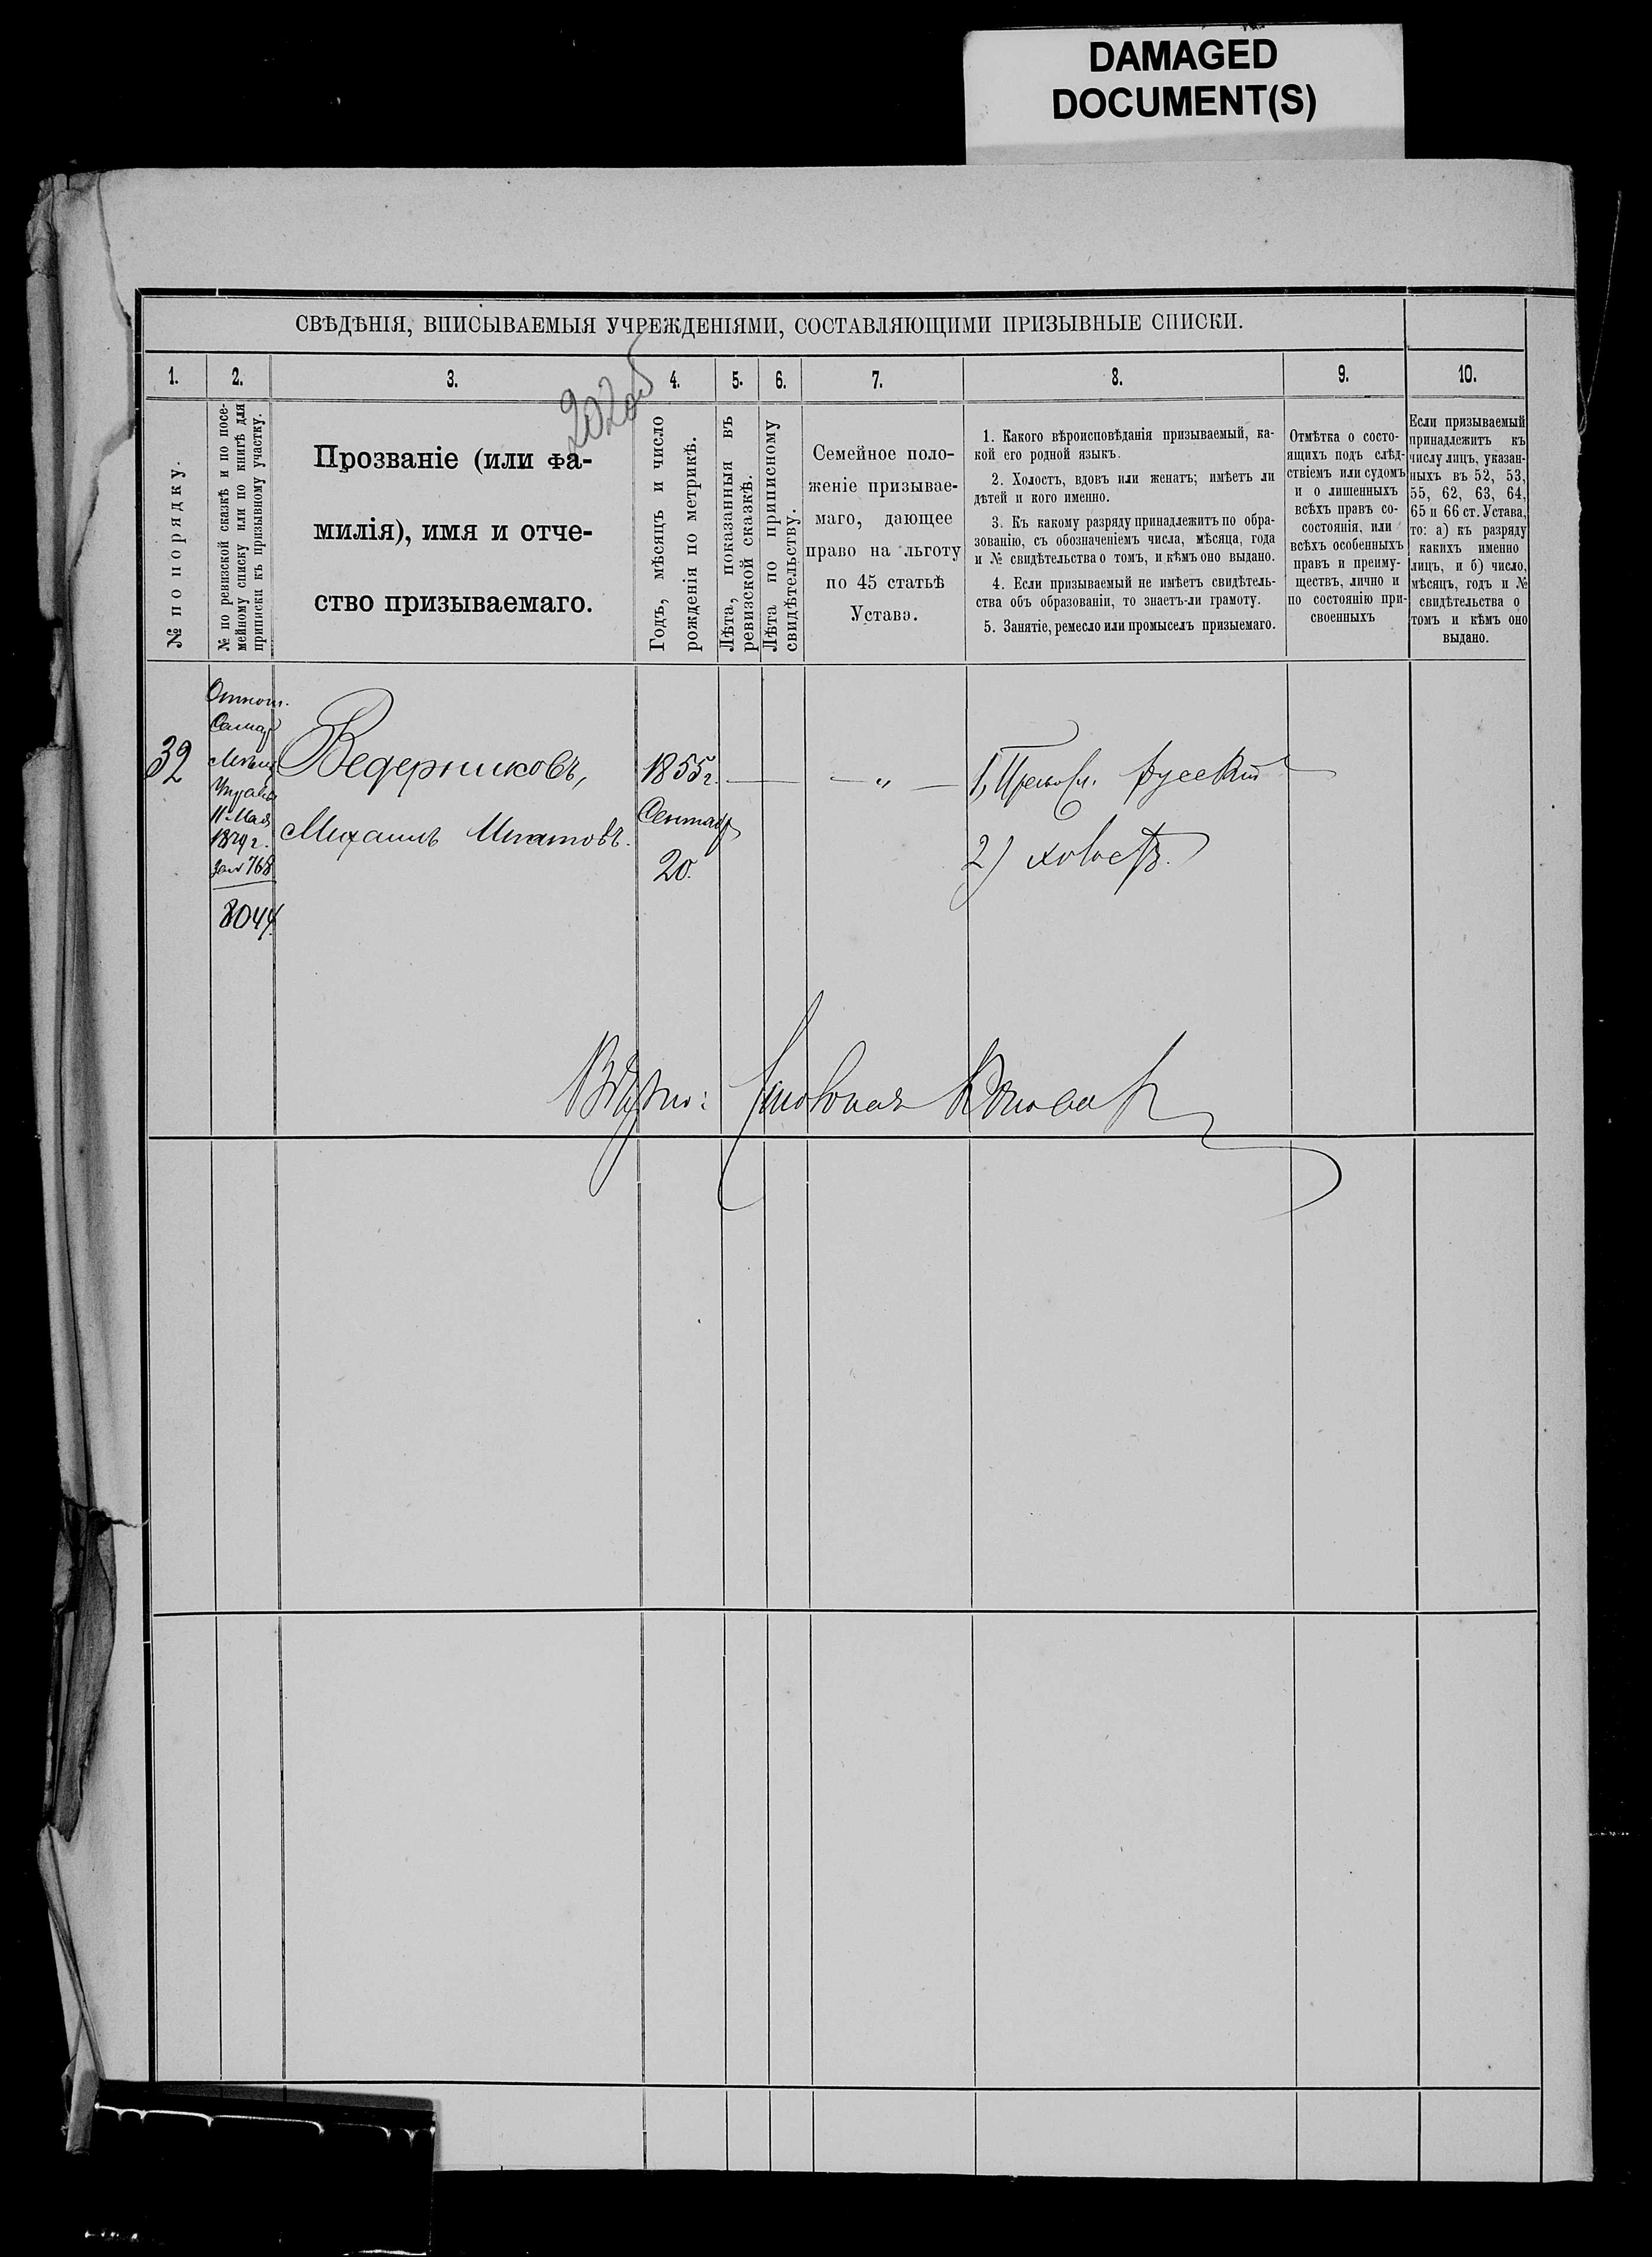 DAMAGED
DOCUMENT(S)
СВѢДѢНІЯ, ВПИСЫВАЕМЫЯ УЧРЕЖДЕНІЯМИ, СОСТАВЛЯЮЩИМИ ПРИЗЫВНЫЕ СПИСКИ.
1.
2.
3.
4.
5.
6.
7.
8.
9.
10.
202об
№ по порядку.
№ по ревизской сказкѣ и по посе-
мейному списку или по книгѣ для
приписки къ призывному участку.
Прозваніе (или фа-
милія), имя и отче-
ство призываемаго.
Годъ, мѣсяцъ и число
рожденія по метрикѣ.
Лѣта, показанныя въ
ревизской сказкѣ.
Лѣта по приписному
свидѣтельству.
Семейное поло-
женіе призывае-
маго, дающее
право на льготу
по 45 статьѣ
Устава.
1. Какого вѣроисповѣданія призываемый, ка-
кой его родной языкъ.
2. Холостъ, вдовъ или женатъ; имѣетъ ли
дѣтей и кого именно.
3. Къ какому разряду принадлежитъ по обра-
зованію, съ обозначеніемъ числа, мѣсяца, года
и № свидѣтельства о томъ, и кѣмъ оно выдано.
4. Если призываемый не имѣетъ свидѣтель-
ства объ образованіи, то знаетъ-ли грамоту.
5. Занятіе, ремесло или промыселъ призыемаго.
Отмѣтка о состо-
ящихъ подъ слѣд-
ствіемъ или судомъ
и о лишенныхъ
всѣхъ правъ со-
состоянія, или
всѣхъ особенныхъ
правъ и преиму-
ществъ, лично и
по состоянію при-
своенныхъ
Если призываемый
принадлежитъ къ
числу лицъ, указан-
ныхъ въ 52, 53,
55, 62, 63, 64,
65 и 66 ст. Устава,
то: а) къ разряду
какихъ именно
лицъ, и б) число,
мѣсяцъ, годъ и №
свидѣтельства о
томъ и кѣмъ оно
выдано.
32
Отнош.
Самар
Мѣщ
Управы
11 Мая
1879 г.
за № 768
8044
Ведерниковъ,
Михаилъ Игнатовъ.
1855 г.
Сентяб
20.
1, Правосл. Русскій
2) холостъ.
Вѣрно: